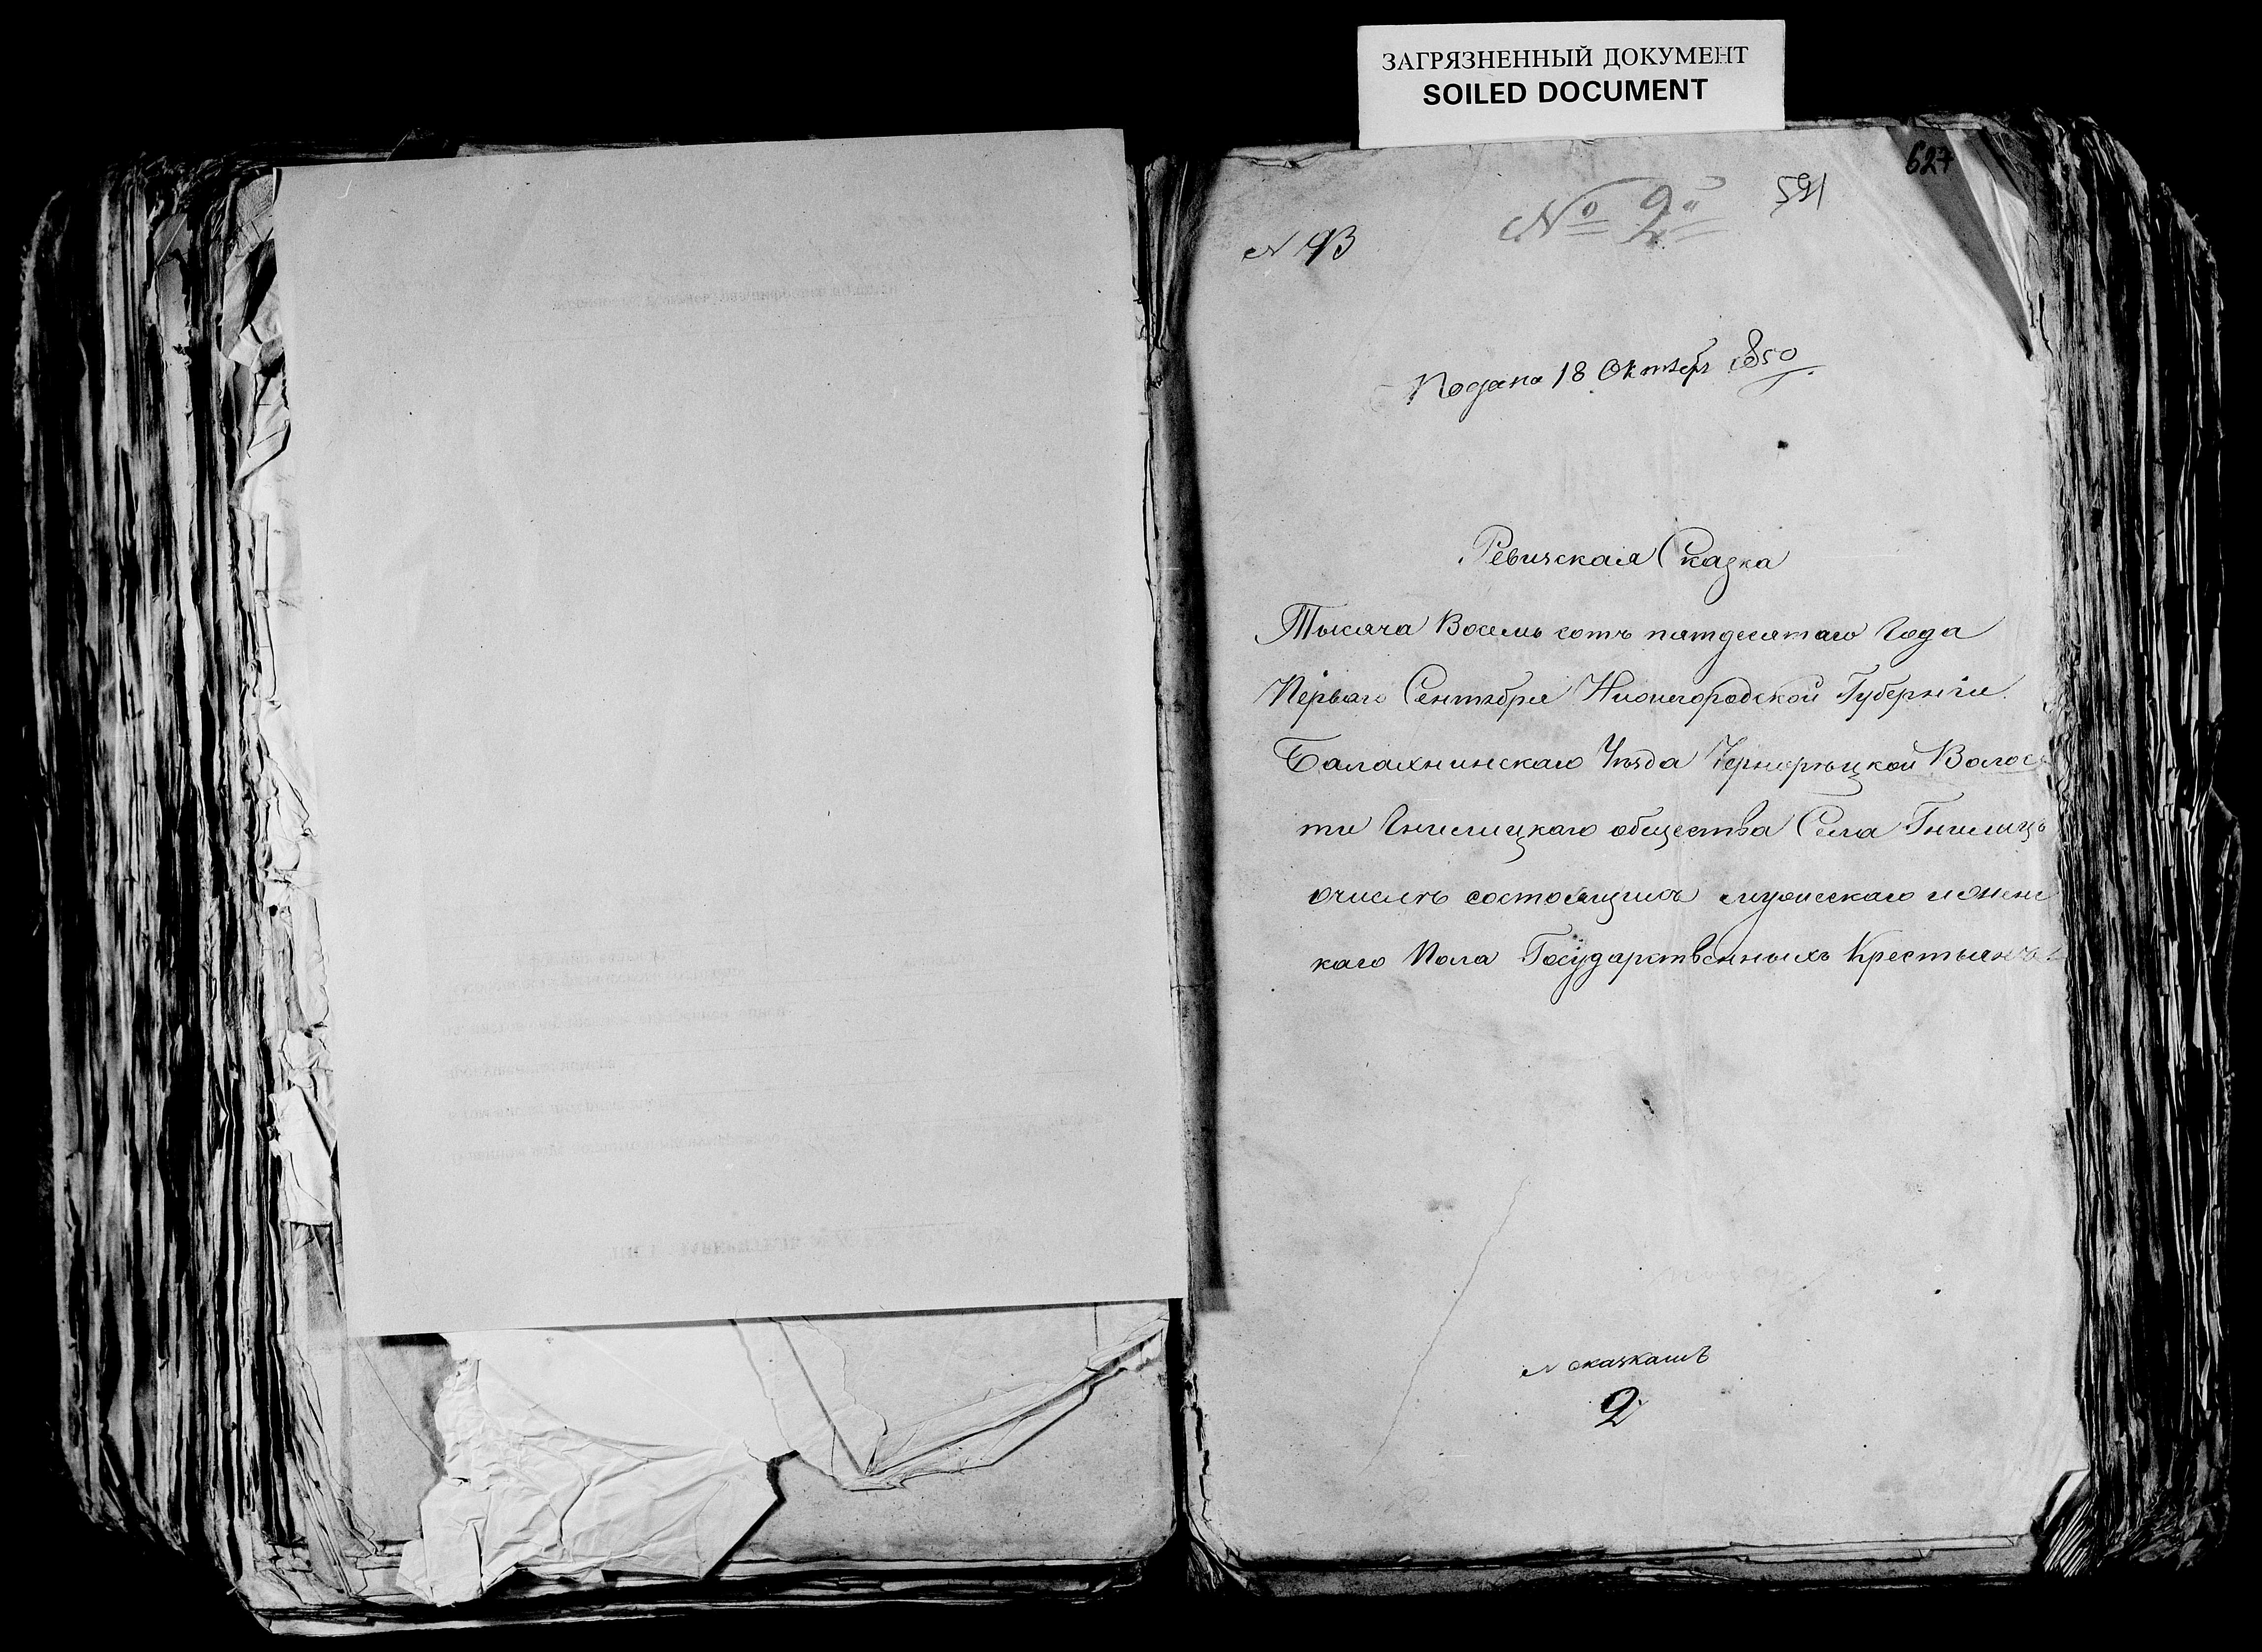 ЗАГРЯЗНЕННЫЙ ДОКУМЕНТ
SOILED DOCUMENT
627
№ 2й
591
N 93
Подана 18 Октября 1850
Ревичская Сказка
Тысяча Восемь сотъ пятдесятаго Года
Перваго Сентября Нижегородской Губерніи
Балахнинскаго Уѣзда Чернорѣцкой Волос
ти Гнилицкаго общества Села Гнилицъ
очислѣ состоящихъ мужескаго и женс
каго Пола Государственныхъ Крестьянъ
N сказкамъ
2